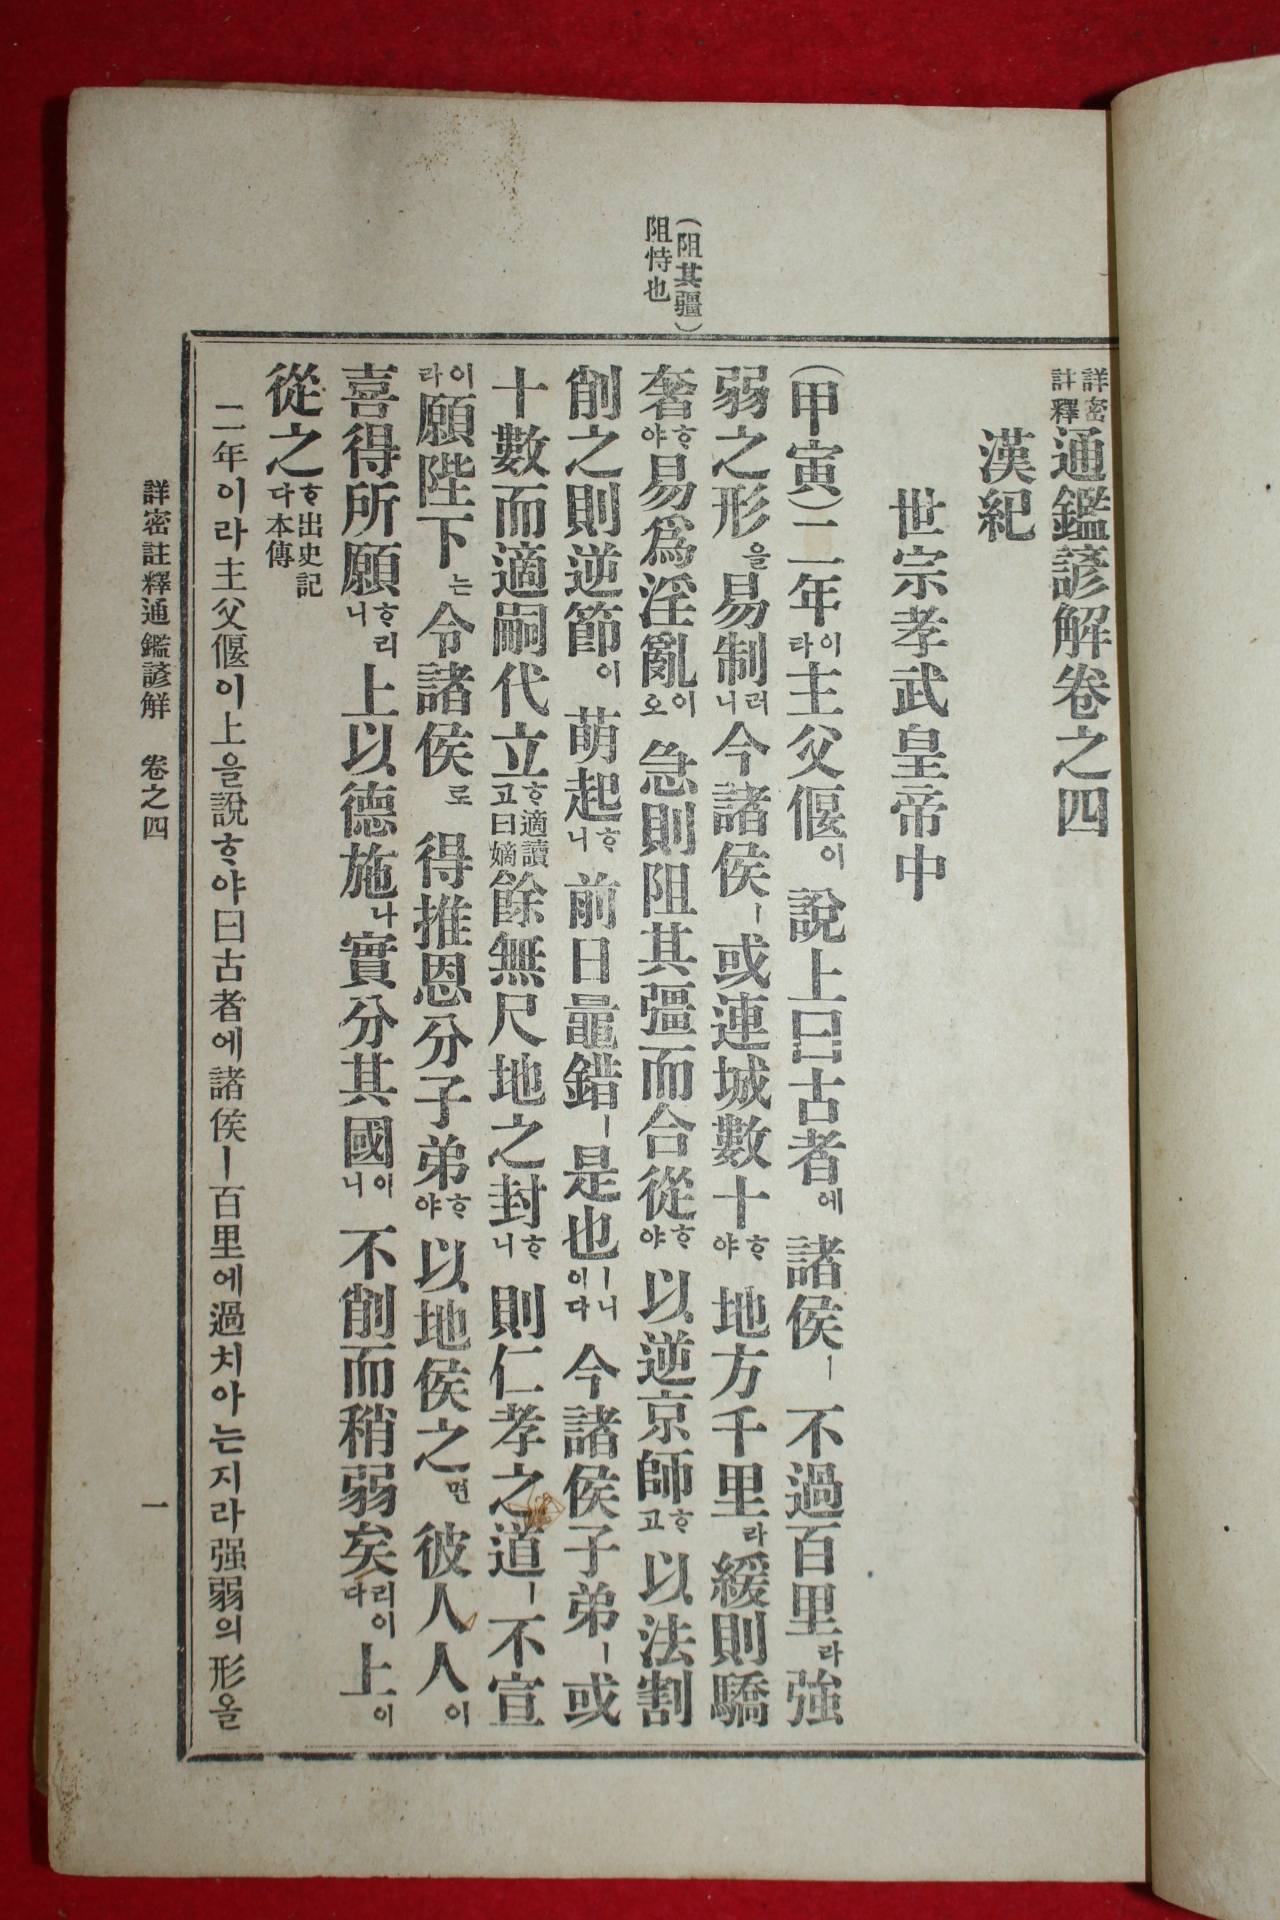 詳密註釋通鑑諺解卷之四
漢紀
世宗孝武皇帝中
(甲寅)二年이라主父偃이說上曰古者에諸侯ㅣ不過百里라強
弱之形을易制러니今諸侯ㅣ或連城數十ᄒᆞ야地方千里라緩則驕
奢ᄒᆞ야易爲淫亂이오急則阻其彊而合從ᄒᆞ야以逆京師ᄒᆞ고以法割
削之則逆節이萌起ᄒᆞ니前日鼂錯ㅣ是也ㅣ니이다今諸侯子弟ㅣ或
十數而適嗣代立ᄒᆞ고適讀曰嫡餘無尺地之封ᄒᆞ니則仁孝之道ㅣ不宣
이라願陛下는令諸侯로得推恩分子弟ᄒᆞ야以地侯之면彼人人이
喜得所願ᄒᆞ리니上以德施나實分其國이니不削而稍弱矣리이다上이
從之ᄒᆞ다出史記本傳
二年이라主父偃이上을說ᄒᆞ야曰古者에諸侯ㅣ百里에過치아는지라强弱의形올
(阻其疆)
阻恃也
詳密註釋通鑑諺解 卷之四 一